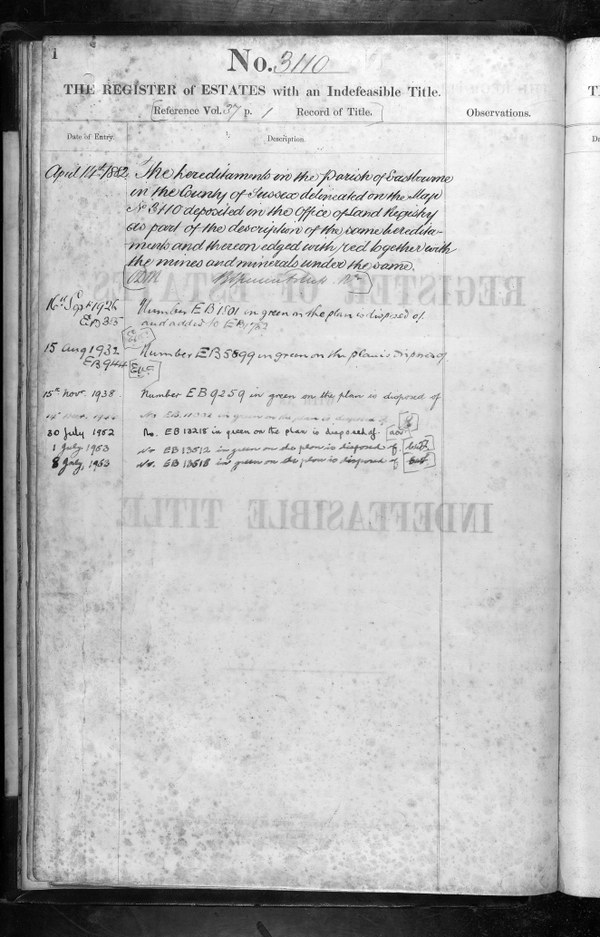 1
No. 3110
THE REGISTER of ESTATES with an Indefeasible Title.
Reference Vol. 37 p. 1 Record of Title.
Observations.
Date of Entry.
Description.
April 14th 1882. The hereditaments in the Parish of Eastbourne
in the County of Sussex delineated on the Map
No 3110 deposited in the Office of Land Registry
as part of the description of the same heredita-
-ments and thereon edged with red together with
the mines and minerals under the same.
16th Sept 1926 Number EB 1501 in green on the plan is disposed of
EB 385 and added to EB
15 Aug 1932 Number EB 5899 in green on the plan is disposed of
EB 944
15th Nov. 1938 Number EB 9259 in green on the plan is disposed of
No. EB in green on the plan is disposed of
30 July 1952 No. EB 13215 in green on the plan is disposed of.
1 July 1953 No EB 13512 in green on the plan is disposed of.
8 July, 1953 No. EB 13518 in green on the plan is disposed of
REGISTER OF ESTATES
INDEFEASIBLE TITLE